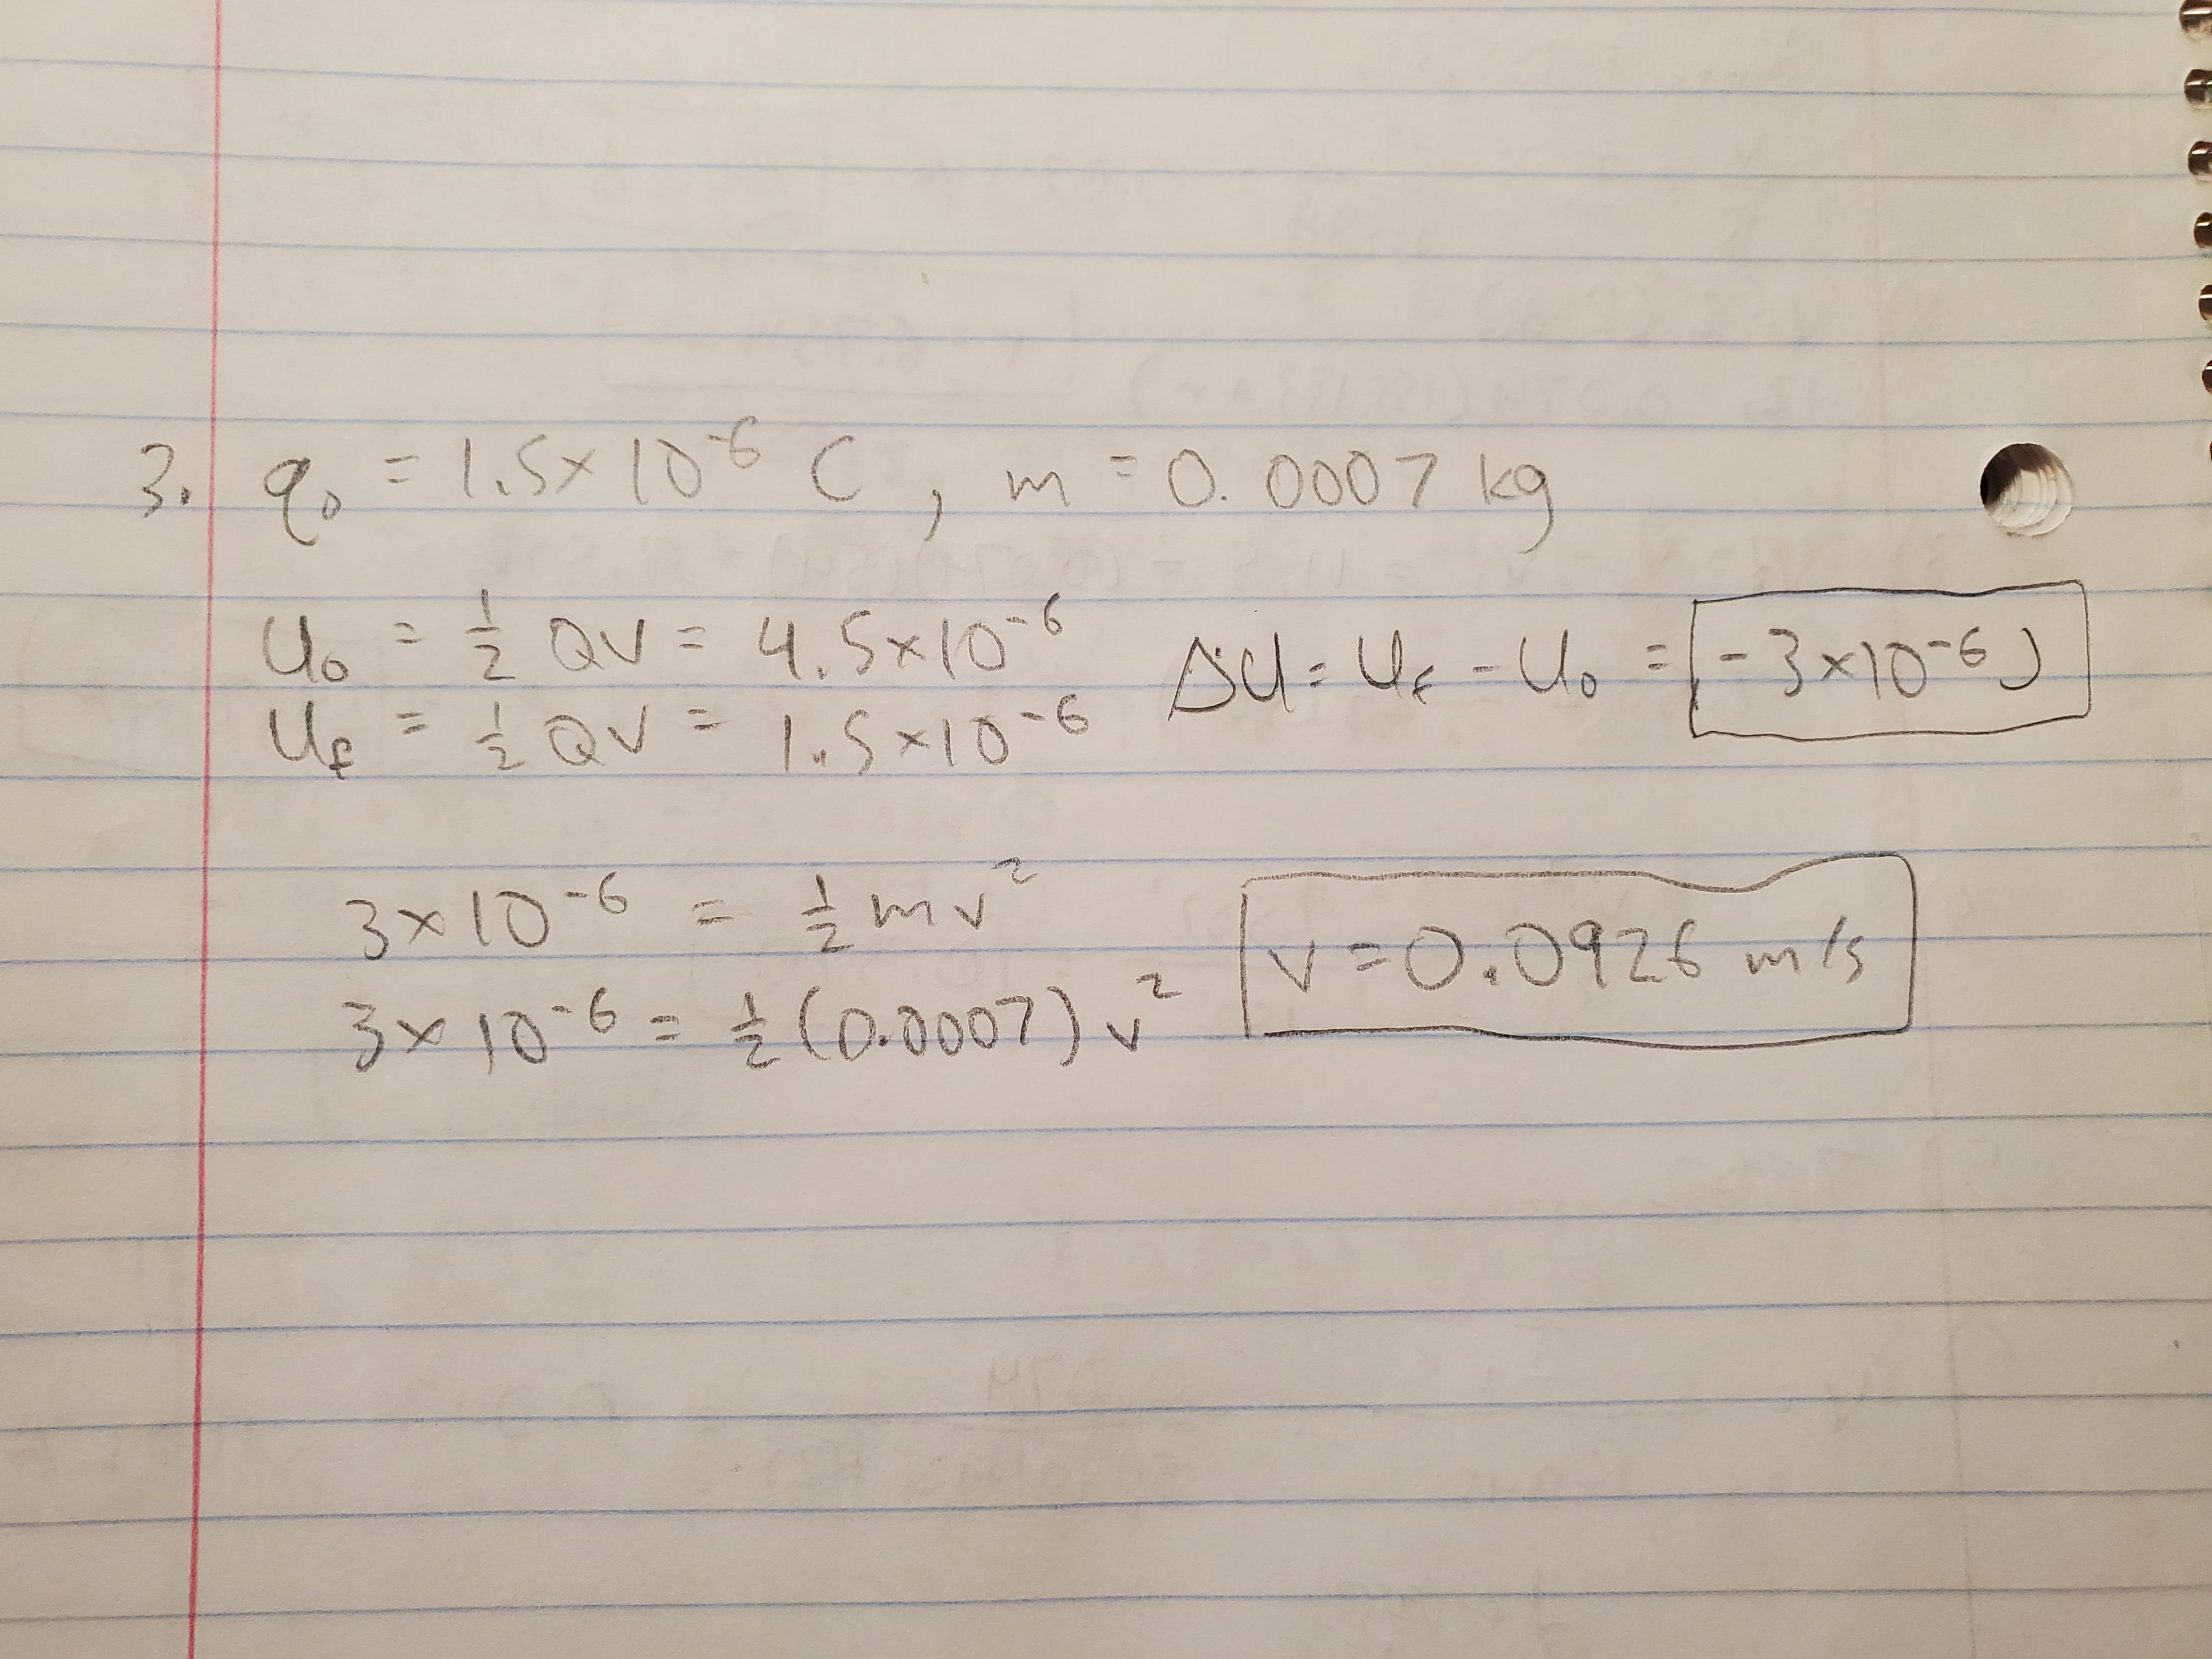 3. q₀ = 1.5×10⁻⁶ C, m = 0.0007 kg
U₀ = ½ QV = 4.5×10⁻⁶
U_f = ½ QV = 1.5×10⁻⁶
ΔU = U_f - U₀ = -3×10⁻⁶ J
3×10⁻⁶ = ½mv²
3×10⁻⁶ = ½(0.0007)v²
v = 0.0926 m/s